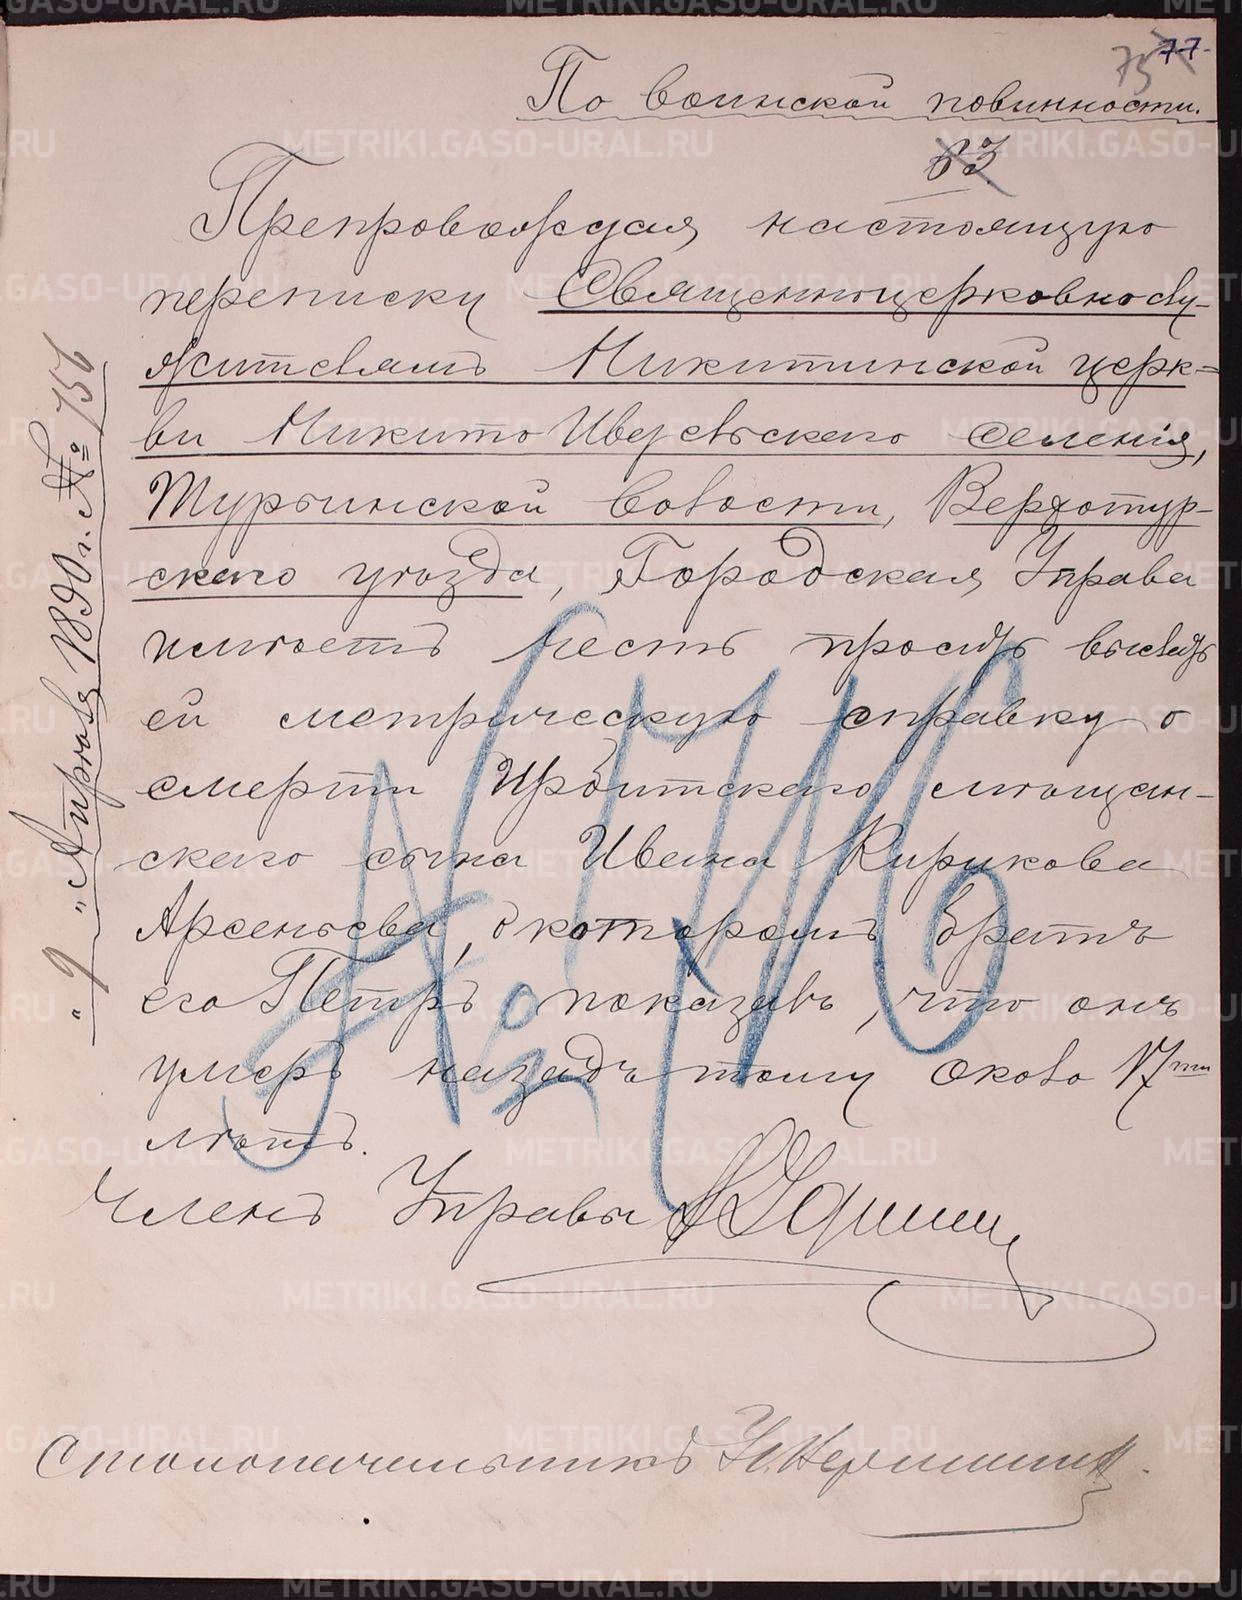 77.
75
По воинской повинности.
63
Препровождая настоящую
переписку Священноцерковнослу-
жителямъ Никитинской церк-
ви Никито Ивдельскаго селенія,
Турьинской волости, Верхотур-
скаго уѣзда, Городская Управа
имѣетъ честь просить выслать
ей метрическую справку о
смерти Ирбитскаго мѣщан-
скаго сына Ивана Кирикова
Арсеньева, о которомъ братъ
его Петръ показалъ, что онъ
умеръ назадъ тому около 17ти
лѣтъ.
Членъ Управы
Столоначальникъ
"9" Апрѣля 1890 г. № 756
METRIKI.GASO-URAL.RU